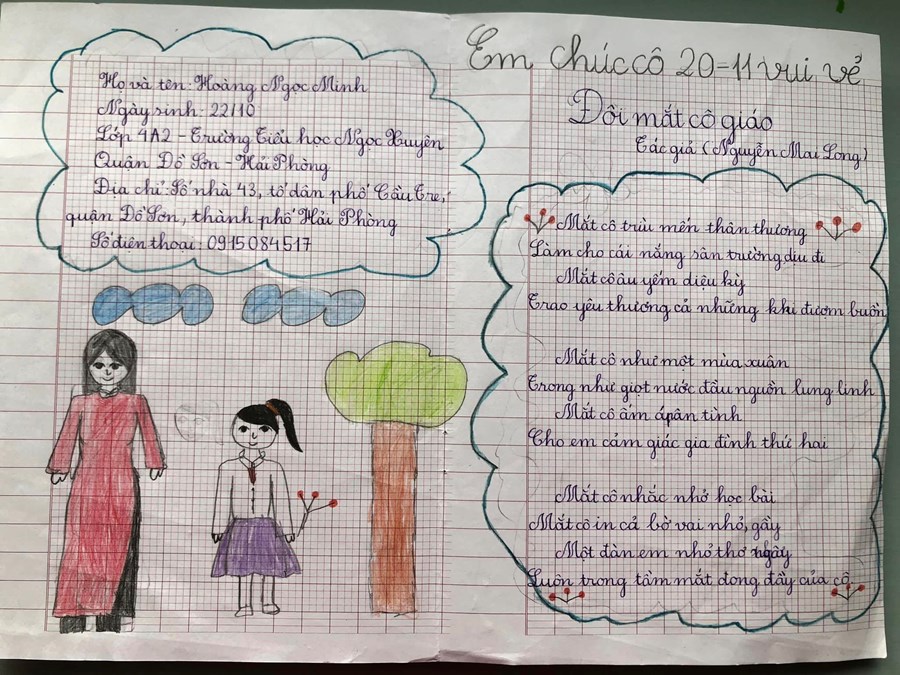 Họ và tên: Hoàng Ngọc Minh
Ngày sinh: 22/10
Lớp 4A2 - Trường Tiểu học Ngọc Xuyên
Quận Đồ Sơn - Hải Phòng
Địa chỉ: Số nhà 43, tổ dân phố Cầu Tre,
quận Đồ Sơn, thành phố Hải Phòng
Số điện thoại: 0915084517
Em chúc cô 20-11 vui vẻ
Đôi mắt cô giáo
Tác giả (Nguyễn Mai Long)
Mắt cô trìu mến thân thương
Làm cho cái nắng sân trường dịu đi
Mắt cô âu yếm diệu kỳ
Trao yêu thương cả những khi đượm buồn
Mắt cô như một mùa xuân
Trong như giọt nước đầu nguồn lung linh
Mắt cô ấm áp ân tình
Cho em cảm giác gia đình thứ hai
Mắt cô nhắc nhở học bài
Mắt cô in cả bờ vai nhỏ, gầy
Một đàn em nhỏ thơ ngây
Luôn trong tầm mắt đong đầy của cô.